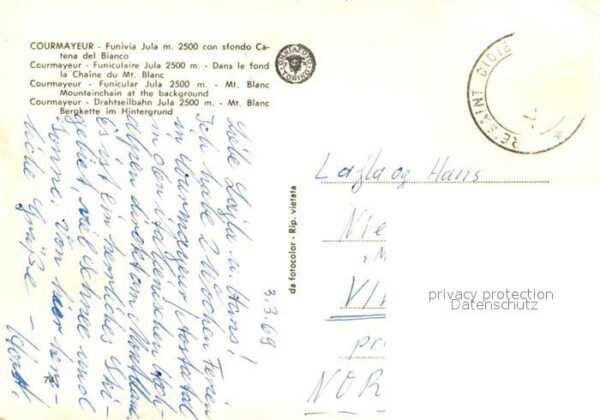 COURMAYEUR - Funivia Jula m. 2500 con sfondo Ca-
tena del Bianco
Courmayeur - Funiculaire Jula 2500 m. - Dans le fond
la Chaîne du Mt. Blanc
Courmayeur - Funicular Jula 2500 m. - Mt. Blanc
Mountainchain at the background
Courmayeur - Drahtseilbahn Jula 2500 m. - Mt. Blanc
Bergkette im Hintergrund
3.3.69
Liebe Lazla u. Hans!
Ich habe 2 Wochen Ferien
in Courmayeur/Aostatal
in den italienischen Hoch-
alpen direkt am Montblanc
Es ist ein herrliches Ski-
gebiet, viel Schnee und
Sonne. Von hier herz-
liche Grüße -
Horst.
74
da fotocolor - Rip. vietata
RE' SAINT DIDIE
Lazla og Hans
Nie
VI
pr
NOR
privacy protection
Datenschutz